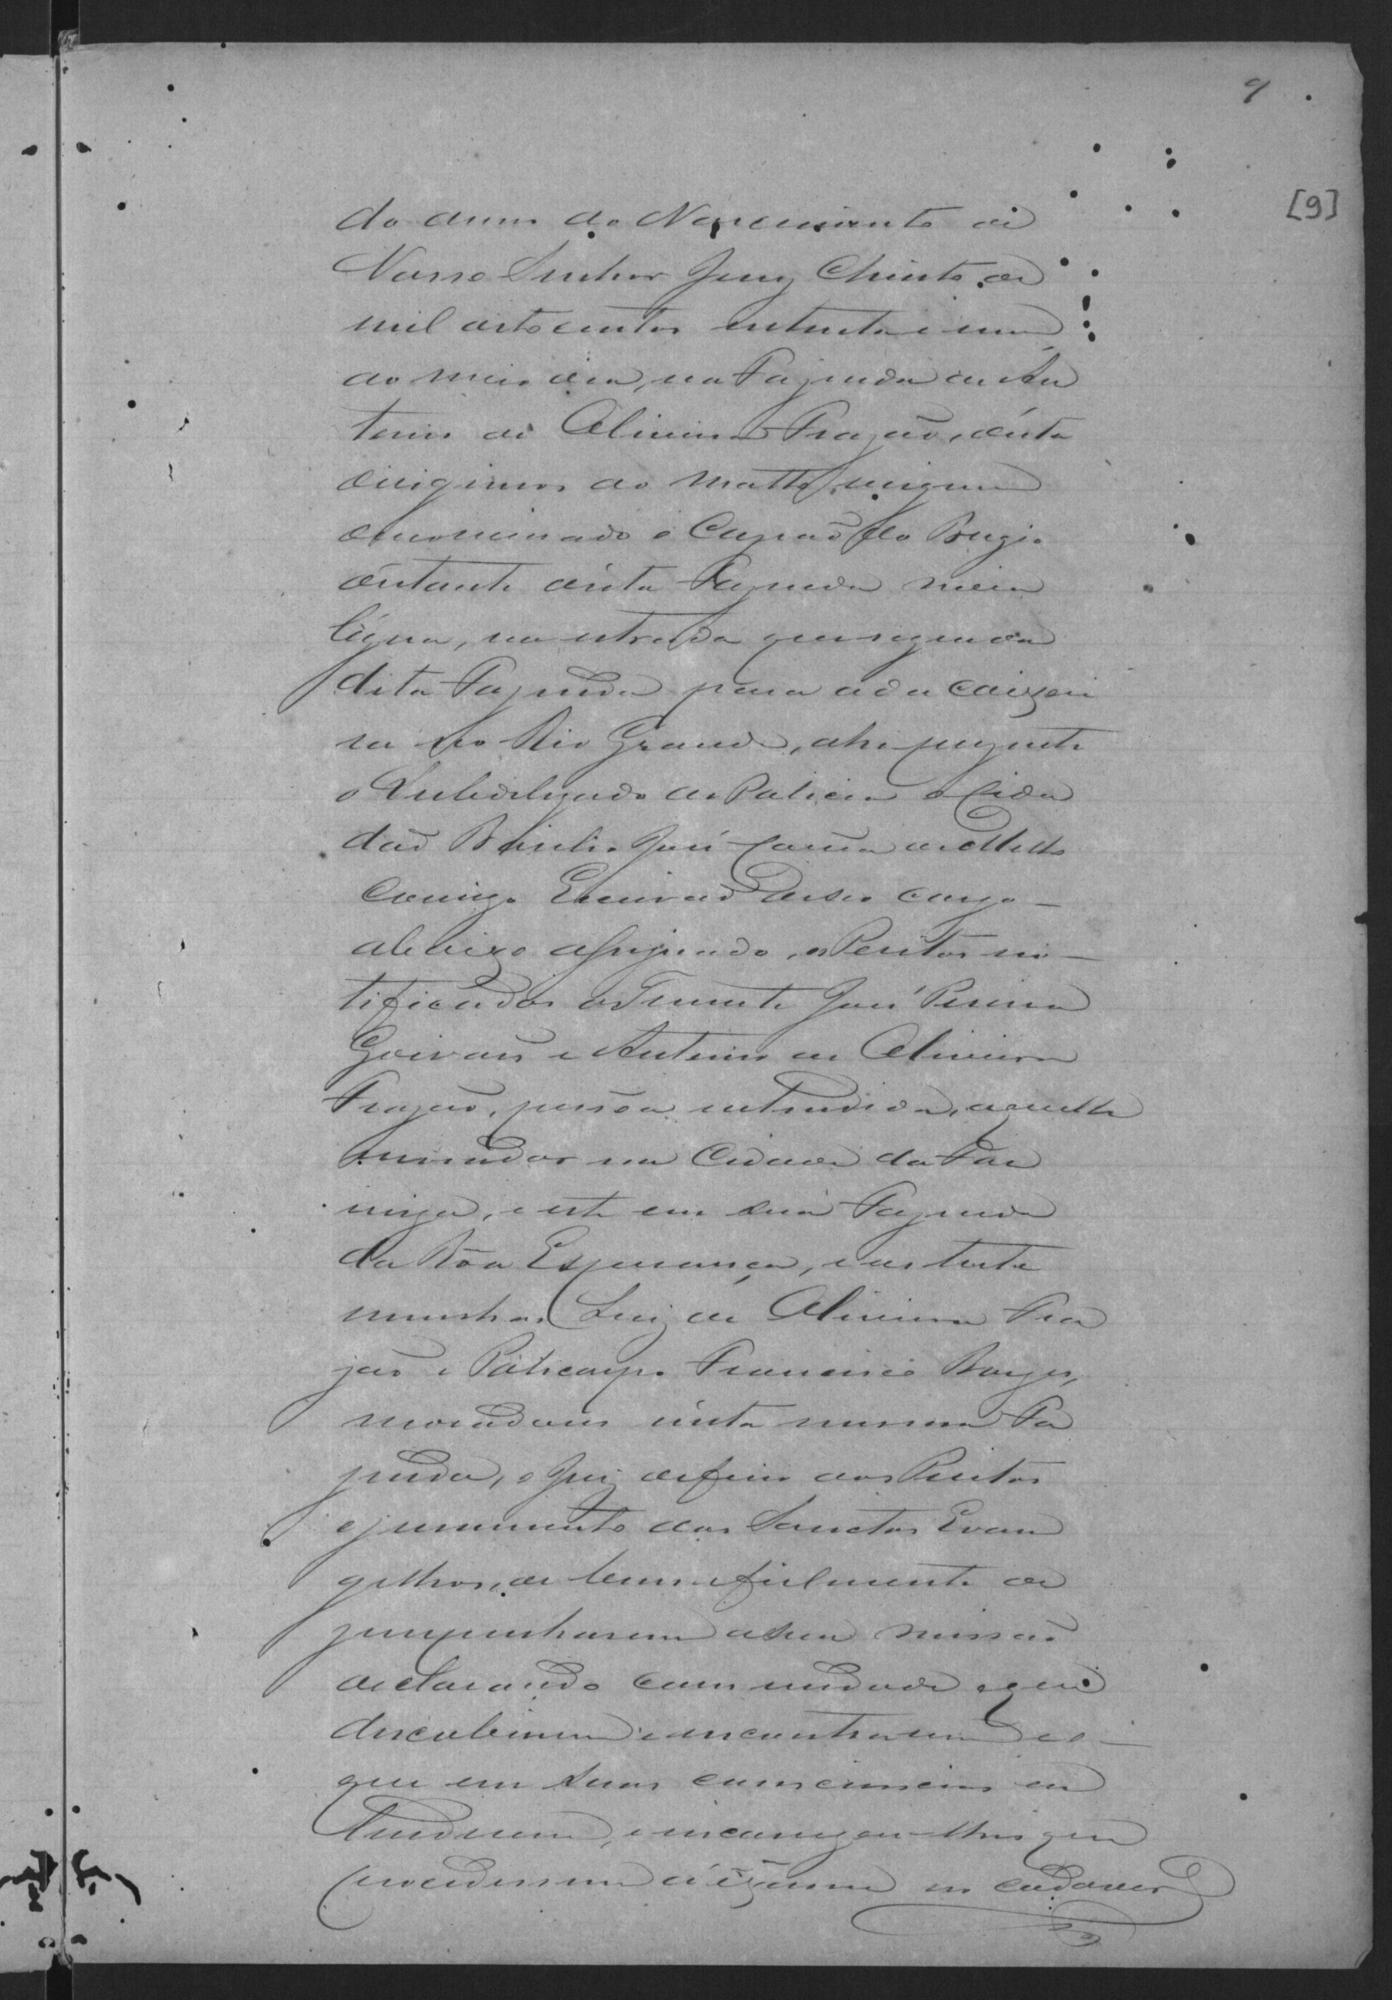 9
[9]
do anno do Nascimento de
Nosso Senhor Jesuz Christo de
mil oito centos setenta e um
ao meio dia, na Fazenda de An
tonio de Oliveira Frazão, desta
dirigimos ao Matto
denominado o Capão do Bugio
distante desta Fazenda meia
légua, na estrada que segue da
dita Fazenda para a da Caixoei
ra do Rio Grande, ahi prezente
o Subdelegado de Policia o Cida
dão Basilio José Corrêa de Mello
comigo Escrivão de seo cargo
abaixo assignado, os Peritos no
tificados o Tenente José Pereira
Goivão e Antonio de Oliveira
Frazão, pessôa entendida, aquelle
morador na Cidade da For
miga, e este em sua Fazenda
da Bôa Esperança, e as teste
munhas Luiz de Oliveira Fra
zão e Policarpo Francisco Borges,
moradores nesta mesma Fa
zenda, o Juiz deferio aos Peritos
o juramento dos Sanctos Evan
gelhos, de bem e fielmente de
zempenharem a sua missão
declarando com verdade o que
descobrirem e encontrarem e o
que em suas consciencias en
tenderem, e encarregou-lhes que
procedessem a exame no cadaver